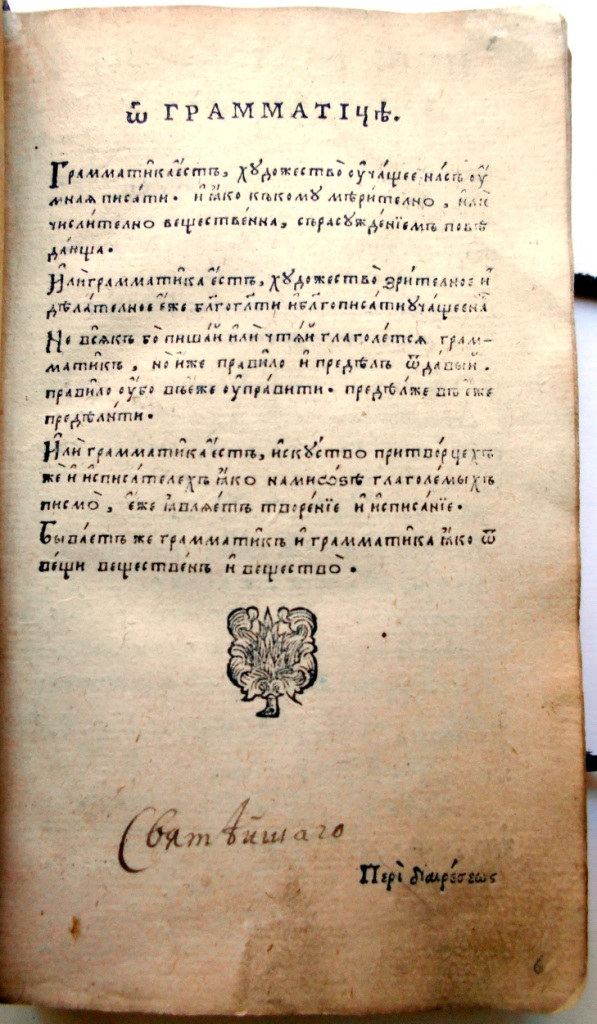 ѿ ГРАММАТІЦѢ.
Грамматика̀ є҆́сть, хꙋдо́жество ᲂу҆ча́щее на́съ ᲂу҆́
мнаѧ писа́ти. и҆ ꙗ҆́ко къ комꙋ мѣри́телно, и҆лѝ
числи́телно веще́ственна, съ расꙋжде́нїемъ повѣ
да́нша.
И҆лѝ грамматика̀ є҆́сть, хꙋдо́жество зри́телное и҆
дѣ́лателное є҆́же бл҃гогл҃ати и҆ бл҃гописа́ти ᲂуча́щее на̀
Не всѧ́къ бо пиша́й и҆лѝ чта́й глаголе́тсѧ грам-
матикъ, но и҆́же пра́вило и҆ предѣ́лъ ѿда́вый.
пра́вило ᲂу҆́бо въ є҆́же ᲂу҆пра́вити. предѣ́лже въ є҆́же
предѣли́ти.
И҆лѝ грамматика̀ є҆́сть, и҆скꙋ́ство при творцехъ
же и҆ и҆списа́телехъ ꙗ҆́ко намно́ѕѣ глаго́лемыхъ
писмо̀, є҆́же ꙗ҆влѧ́етъ творе́нїе и҆ и҆списа́нїе.
Быва́етъ же грамматикъ и҆ грамматика ꙗ҆́ко ѿ
ве́щи веще́ственъ и҆ вещество̀.
Свят ѣйшаго
Περὶ διαιρέσεως
6